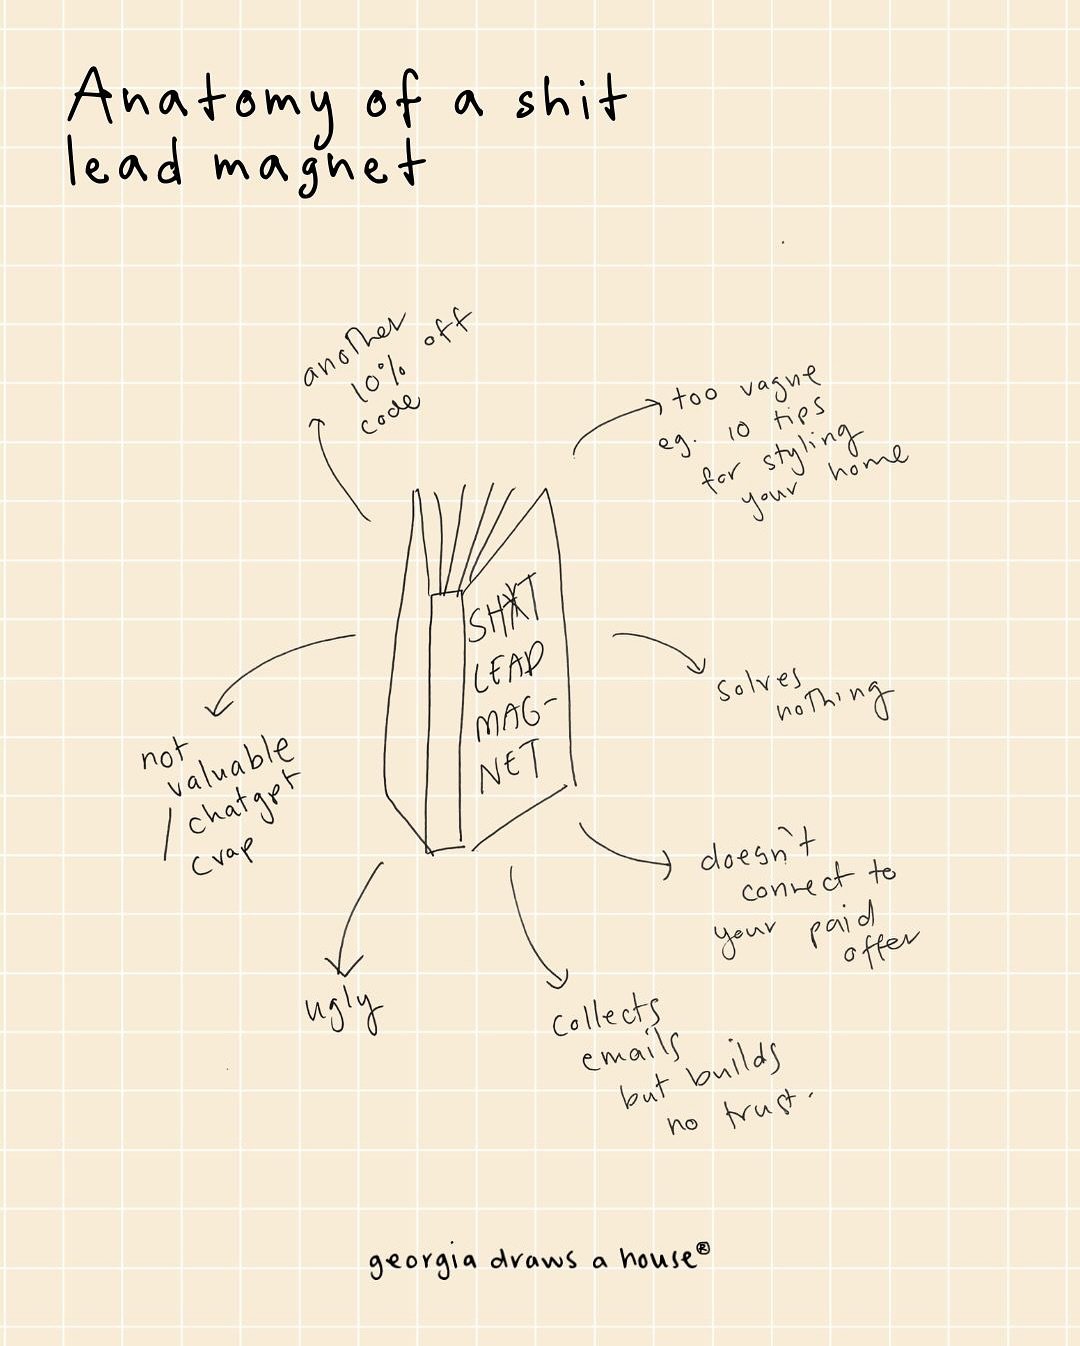 Anatomy of a shit
lead magnet
another
10% off
code
too vague
eg. 10 tips
for styling
your home
SH*T
LEAD
MAG-
NET
solves
nothing
not
valuable
/ chatgpt
crap
doesn't
connect to
your paid
offer
ugly
Collects
emails
but builds
no trust.
georgia draws a house®